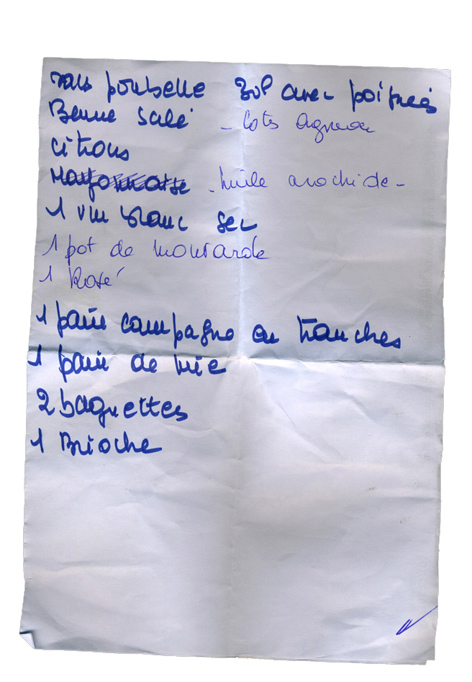 sacs poubelle 30l avec poignés
Beurre salé - cots agneau
citrons
Mayonnaise - huile arachide -
1 vin blanc sec
1 pot de moutarde
1 Rosé
1 pain campagne en tranches
1 pain de mie
2 baguettes
1 Brioche